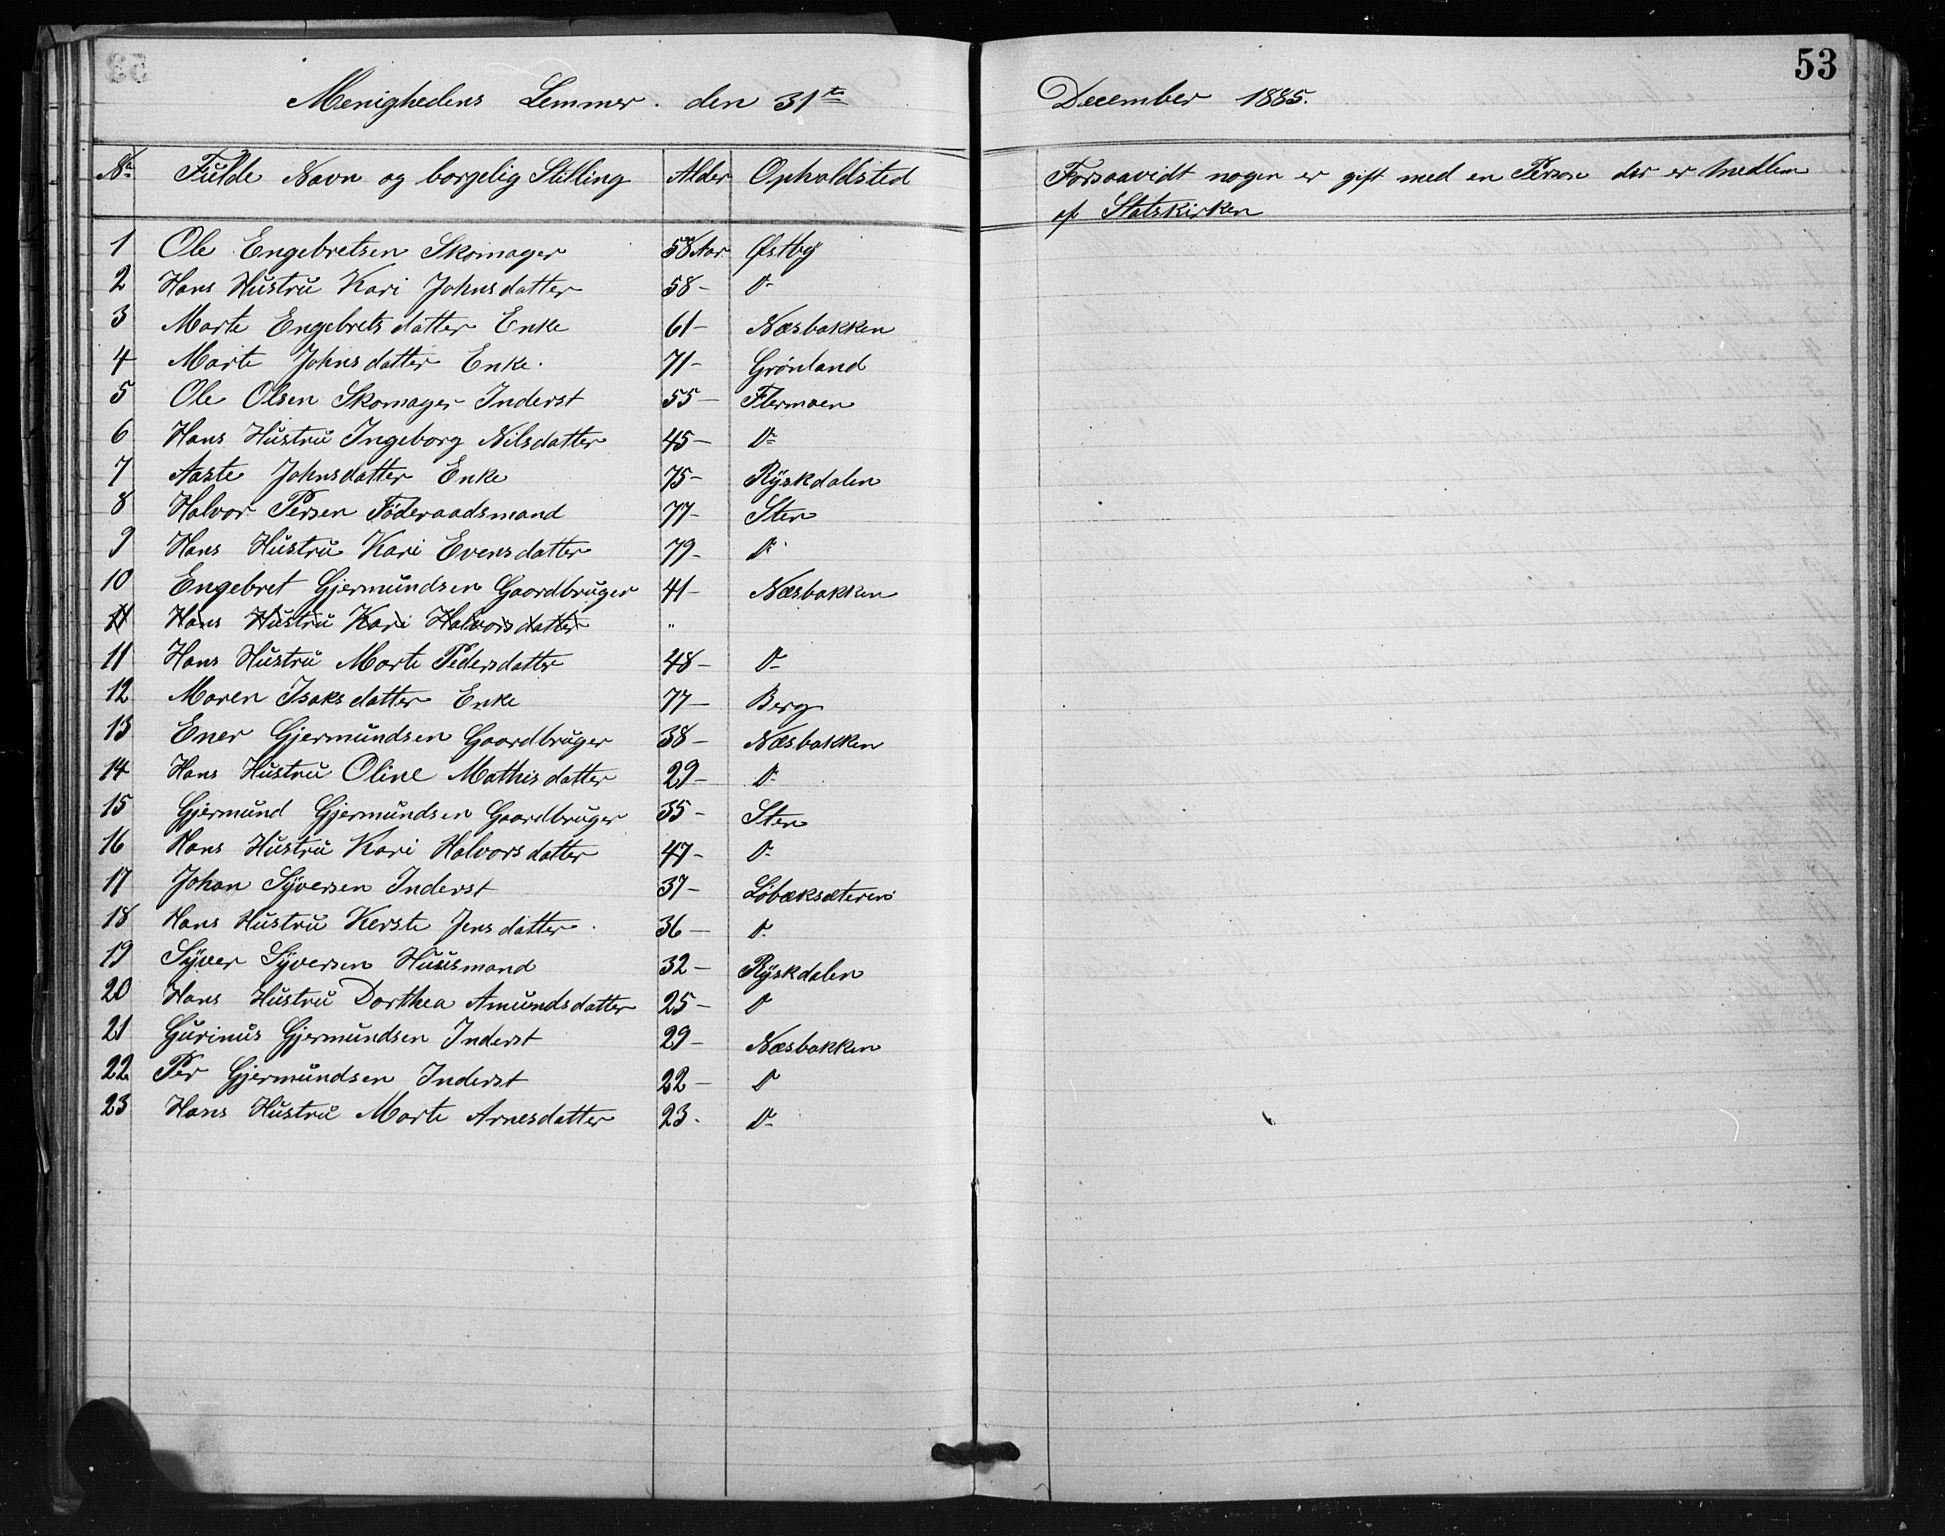 53
Menighedens Lemmer den 31te December 1885.
No Fulde Navn og borgelig Stilling Alder Opholdsted Forsaavidt nogen er gift med en Person der er Medlem
af Statskirken
1 Ole Engebretsen Skomager 58 Aar Østby
2 Hans Hustru Kari Johnsdatter 58 - Do
3 Marte Engebretsdatter Enke 61 - Næsbakken
4 Marte Johnsdatter Enke. 71 - Grönland
5 Ole Olsen Skomager Inderst 55 - Flermoen
6 Hans Hustru Ingeborg Nilsdatter 45 - Do
7 Aaste Johnsdatter Enke 75 - Ryskdalen
8 Halvor Persen Föderaadsmand 77 - Sten
9 Hans Hustru Kari Evensdatter 79 - Do
10 Engebret Gjermundsen Gaardbruger 41 - Næsbakken
11 Hans Hustru Kari Halvorsdatter "
11 Hans Hustru Marte Pedersdatter 48 - Do
12 Maren Isaksdatter Enke 77 - Berg
13 Ener Gjermundsen Gaardbruger 38 - Næsbakken
14 Hans Hustru Oline Mathisdatter 29 - Do
15 Gjermund Gjermundsen Gaardbruger 35 - Sten
16 Hans Hustru Kari Halvorsdatter 47 - Do
17 Johan Syversen Inderst 37 - Löbæksæteren
18 Hans Hustru Kerste Jensdatter 36 - Do
19 Syver Syversen Huusmand 32 - Ryskdalen
20 Hans Hustru Dorthea Amundsdatter 25 - Do
21 Gurinus Gjermundsen Inderst 29 - Næsbakken
22 Per Gjermundsen Inderst 22 - Do
23 Hans Hustru Marte Arnesdatter 23. Do